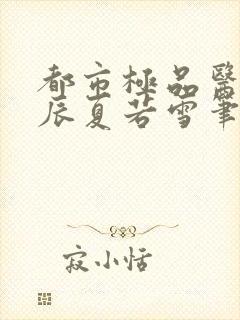 都市極品醫
辰夏若雪筆
寂小恬